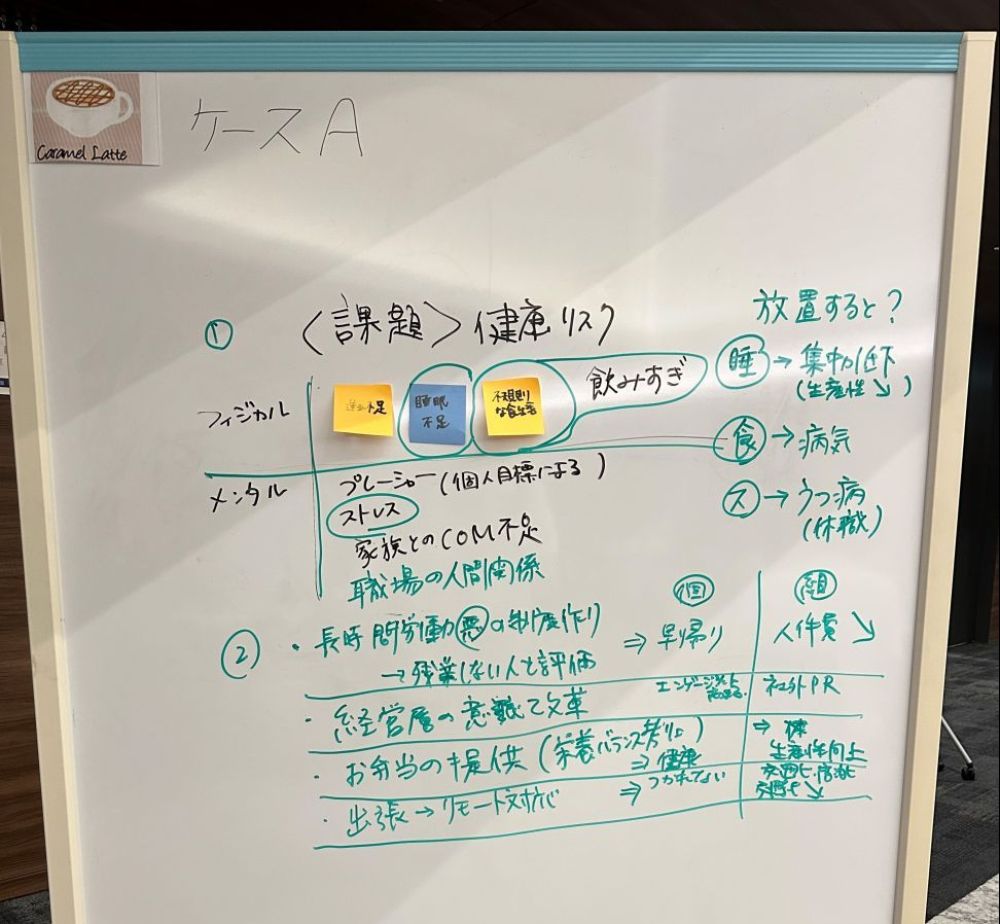 Caramel Latte
ケースA
① 〈課題〉健康リスク
フィジカル
運動不足
睡眠
不足
不規則
な食生活
飲みすぎ
メンタル
プレーシャー(個人目標による)
ストレス
家族とのCOM不足
職場の人間関係
放置すると?
睡→集中力低下
(生産性↘)
食→病気
ス→うつ病
(休職)
個 組
② ・長時間労働悪の制度作り ⇒早帰り 人件費↘
→残業しない人を評価
・経営層の意識改革 エンゲージメント 社外PR
・お弁当の提供(栄養バランス ) ⇒健康 ⇒
生産性向上
・出張→リモート対応 ⇒つかれてない 交通費↘